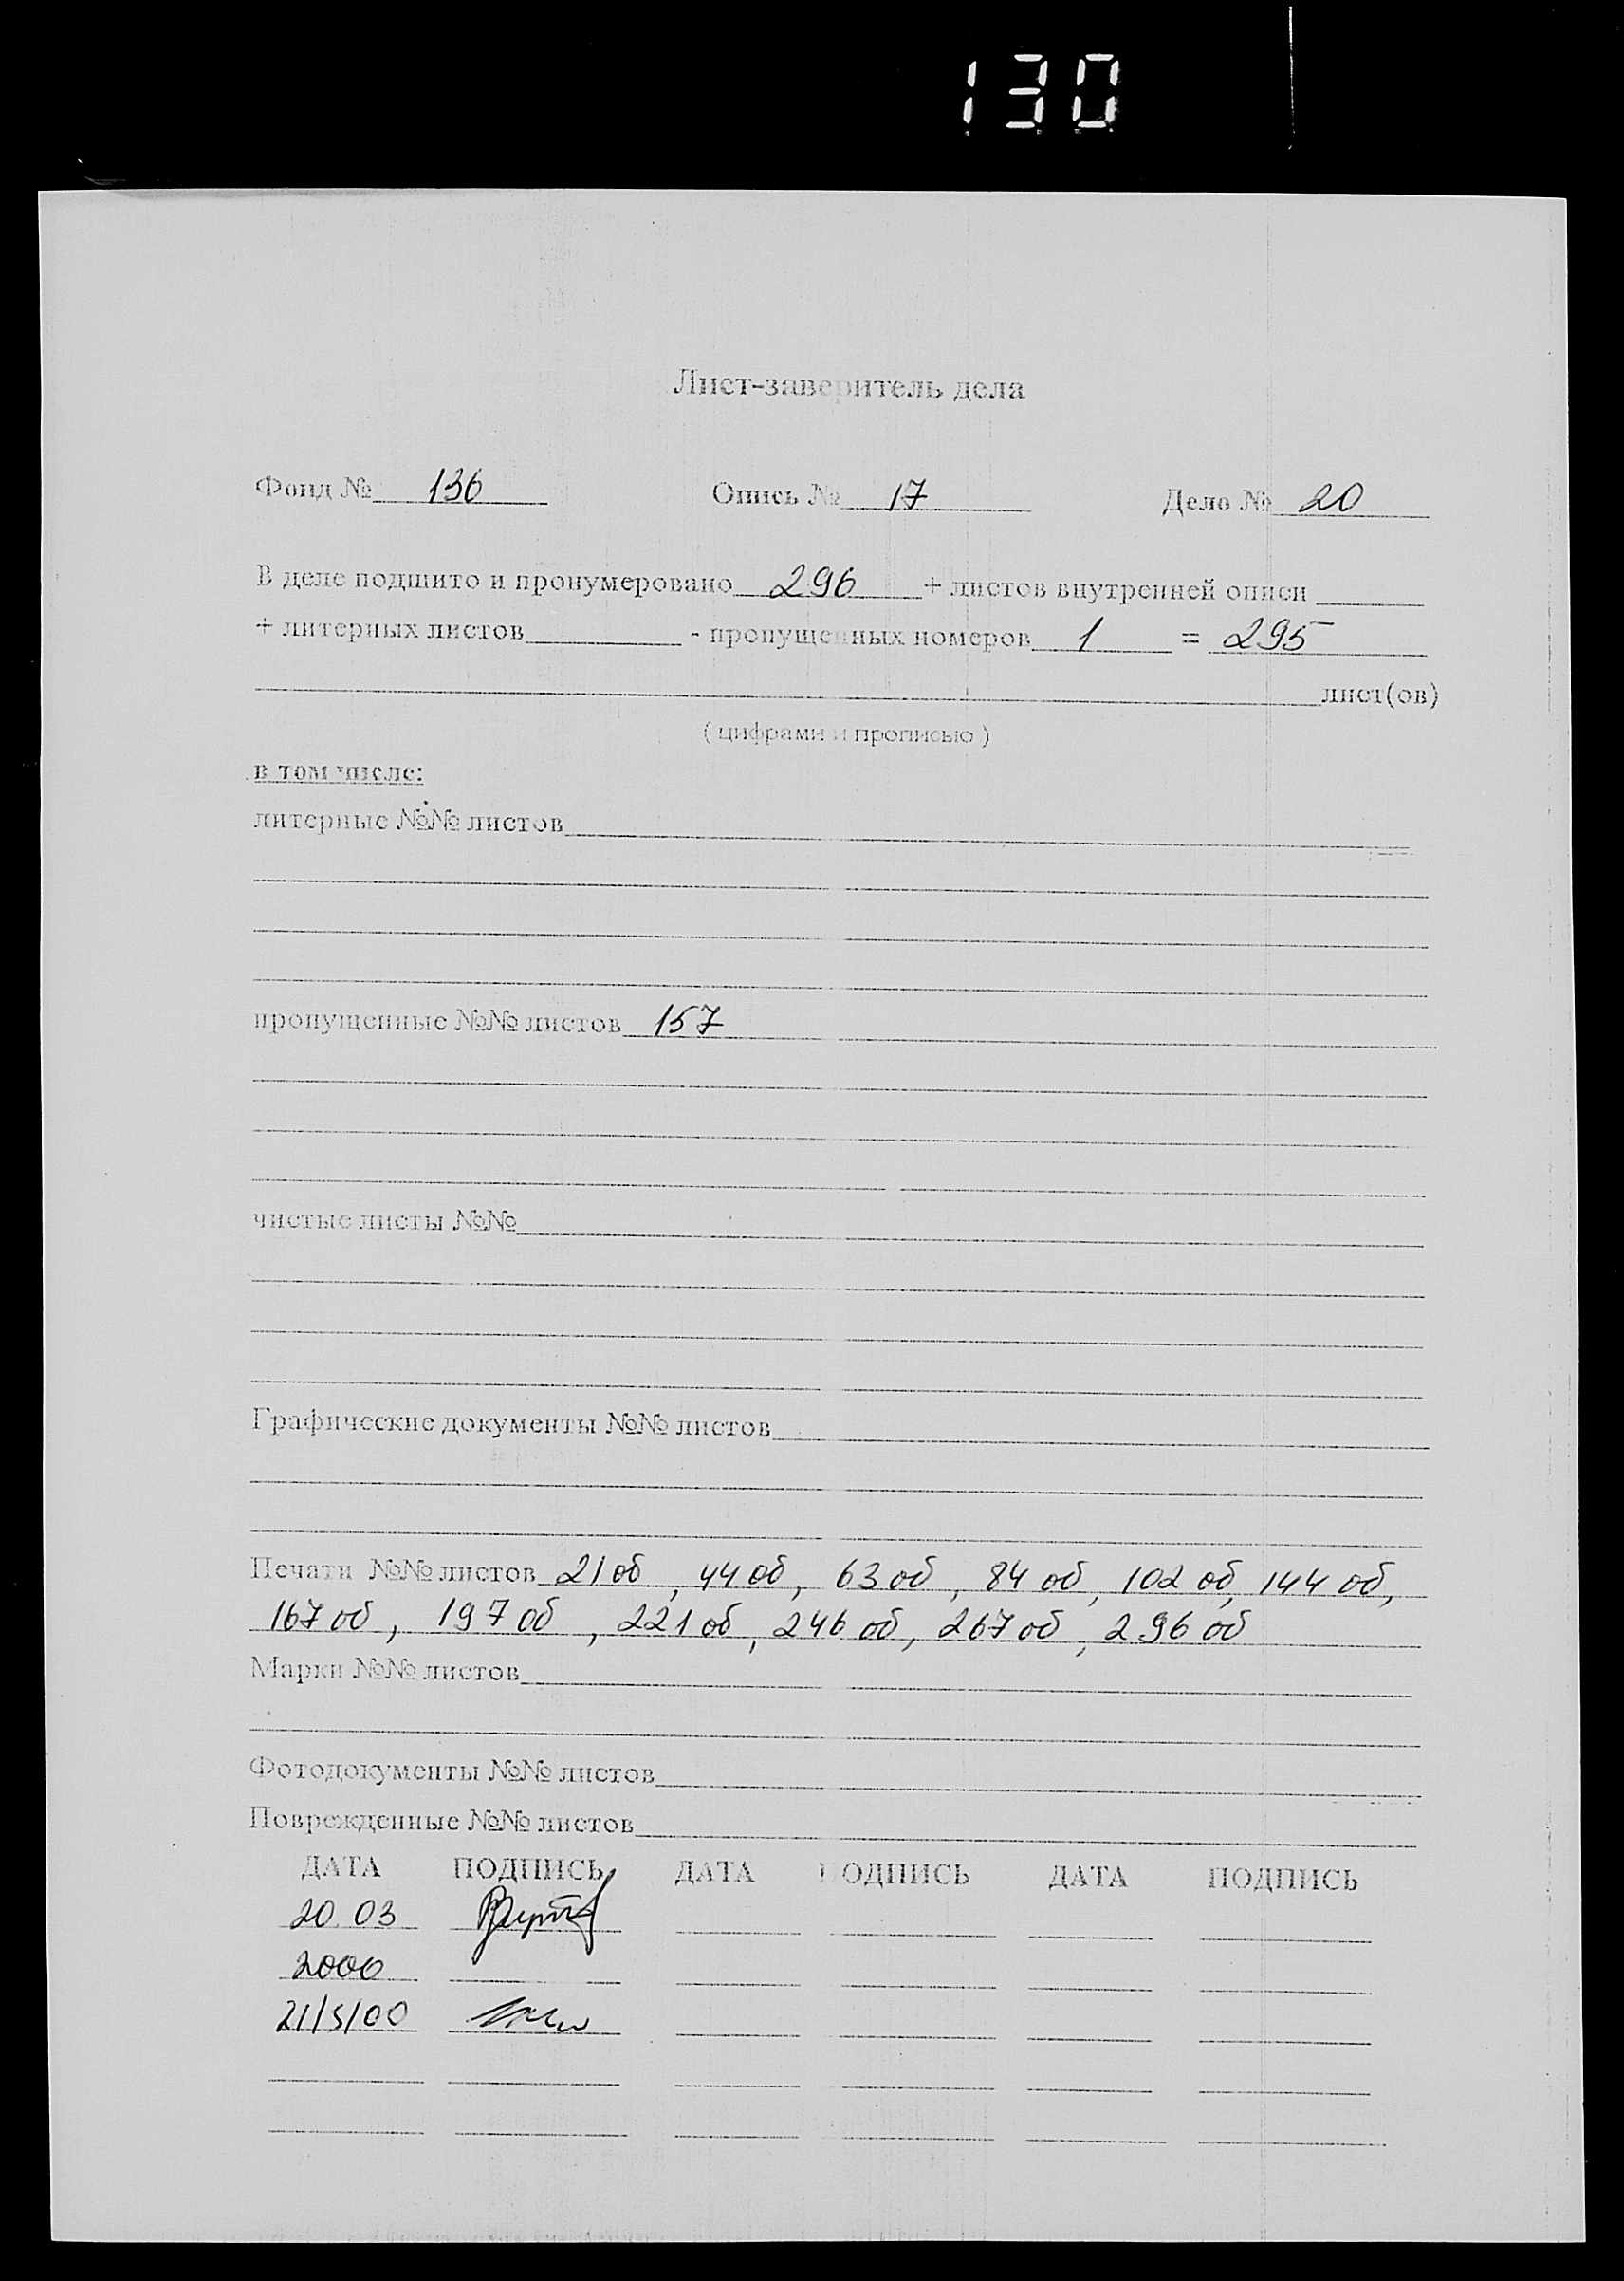 130
Лист-заверитель дела
Фонд № 136 Опись № 17 Дело № 20
В деле подшито и пронумеровано 296 + листов внутренней описи
+ литерных листов - пропущенных номеров 1 = 295
лист(ов)
( цифрами и прописью )
в том числе:
литерные №№ листов
пропущенные №№ листов 157
чистые листы №№
Графические документы №№ листов
Печати №№ листов 21 об, 44 об, 63 об, 84 об, 102 об, 144 об,
167 об, 197 об, 221 об, 246 об, 267 об, 296 об
Марки №№ листов
Фотодокументы №№ листов
Поврежденные №№ листов
ДАТА ПОДПИСЬ ДАТА ПОДПИСЬ ДАТА ПОДПИСЬ
20.03
2000
21/5/00